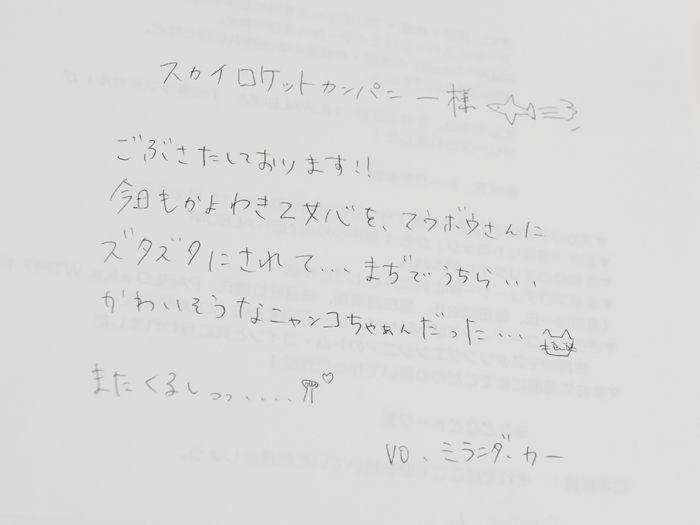 スカイロケットカンパニー様
ごぶさたしております!!
今日もかよわきZ女心を、てウボウさんに
ズタズタにされて... まぢでうちら...
かわいそうなニャンコちゃぁんだった...
またくるしっっ.....
VO、ミランダ・カー